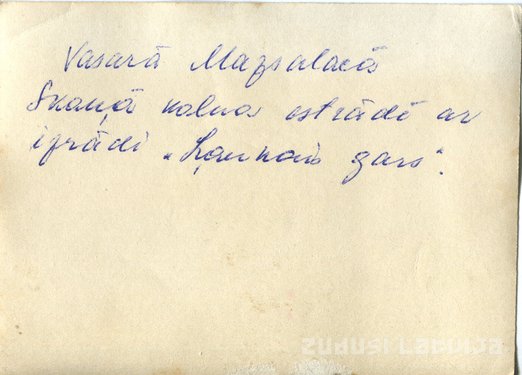 Vasarā Mazsalacā
Skaņā kalna estrādē ar
izrādi „Ļaunais gars".
zudusi Latvija